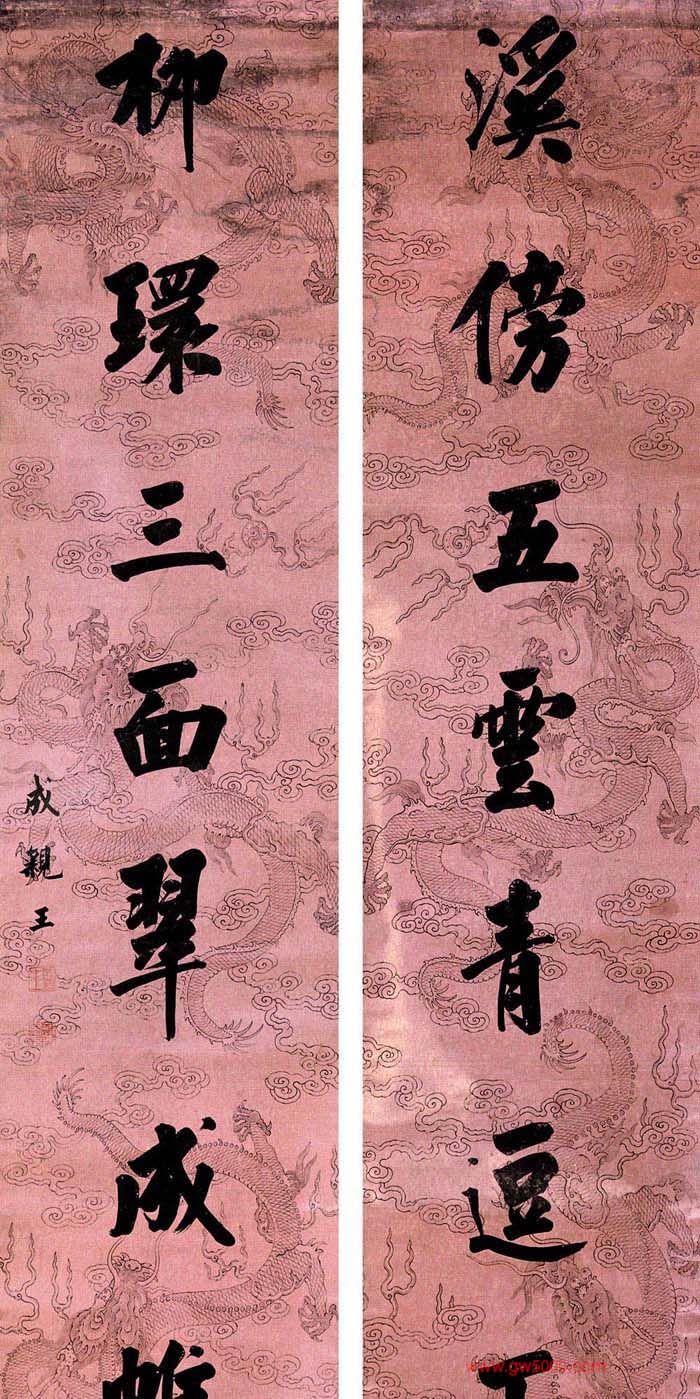 溪傍五雲青逗
柳環三面翠成
成親王
www.gw500c.com